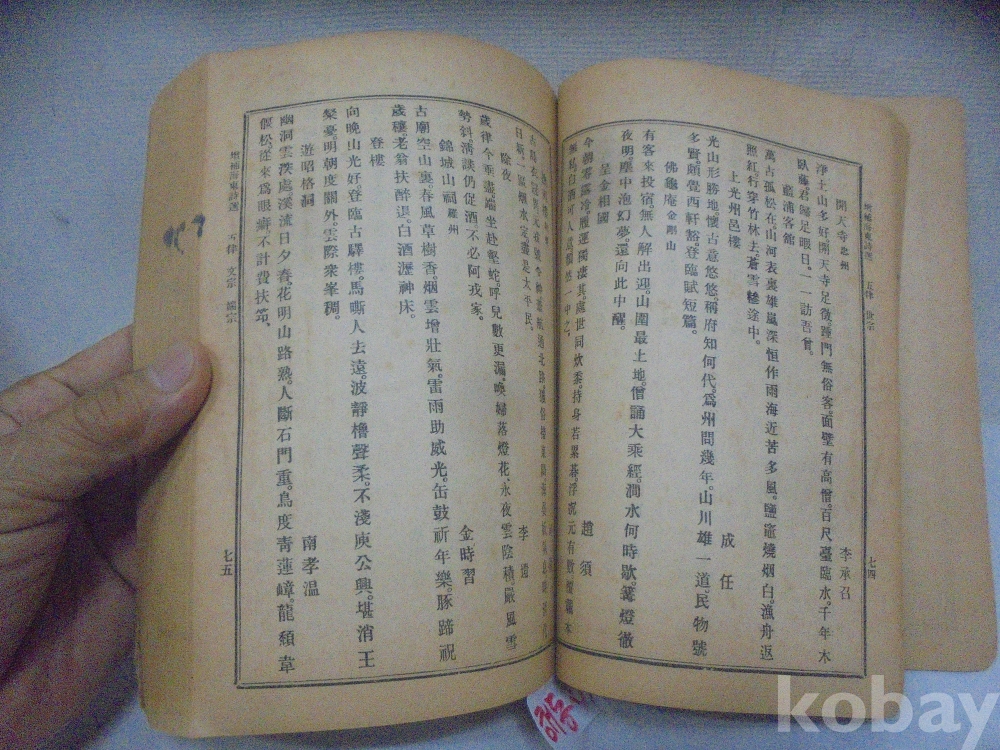 增補海東詩選 五律 世宗 七四
開天寺 忠州 李承召
淨土山多好。開天寺足徵。踵門無俗客。面壁有高僧。百尺臺臨水。千年木
臥藤。君歸足眼日。一一訪吾曾。
藍浦客館
萬古孤松在。山河表裏雄。嵐深恒作雨。海近苦多風。鹽竈燒烟白。漁舟返
照紅。行穿竹林去。蒼雪途中。
上光州邑樓 成任
光山形勝地。懷古意悠悠。稱府知何代。爲州問幾年。山川雄一道。民物號
多賢。頗覺西軒豁。登臨賦短篇。
佛龜庵 金剛山
有客來投宿。無人解出迎。山圍最上地。僧誦大乘經。澗水何時歇。篝燈徹
夜明。塵中泡幻夢。還向此中醒。
呈金相國 趙須
今朝零露冷。履運獨淒其。處世同炊黍。持身若累碁。浮沉元有數
除夜 李
歲律今垂盡。蹁坐赴壑蛇。呼兒數更漏。喚婦落燈花。永夜雲陰積。嚴風雪
勢斜。淸談仍促酒。不必阿戎家。
錦城山祠 羅州 金時習
古廟空山裏。春風草樹香。烟雲增壯氣。雷雨助威光。缶鼓祈年樂。豚蹄祝
歲穰。老翁扶醉退。白酒瀝神床。
登樓
向晚山光好。登臨古驛樓。馬嘶人去遠。波靜櫓聲柔。不淺庾公興。堪消王
粲憂。明朝度關外。雲際衆峯稠。
遊昭格洞 南孝温
幽洞雲深處。溪流日夕舂。花明山路熟。人斷石門重。鳥度靑蓮嶂。龍頹韋
偃松。從來爲眼癖。不計費扶筇。
增補海東詩選 五律 文宗 端宗 七五
kobay